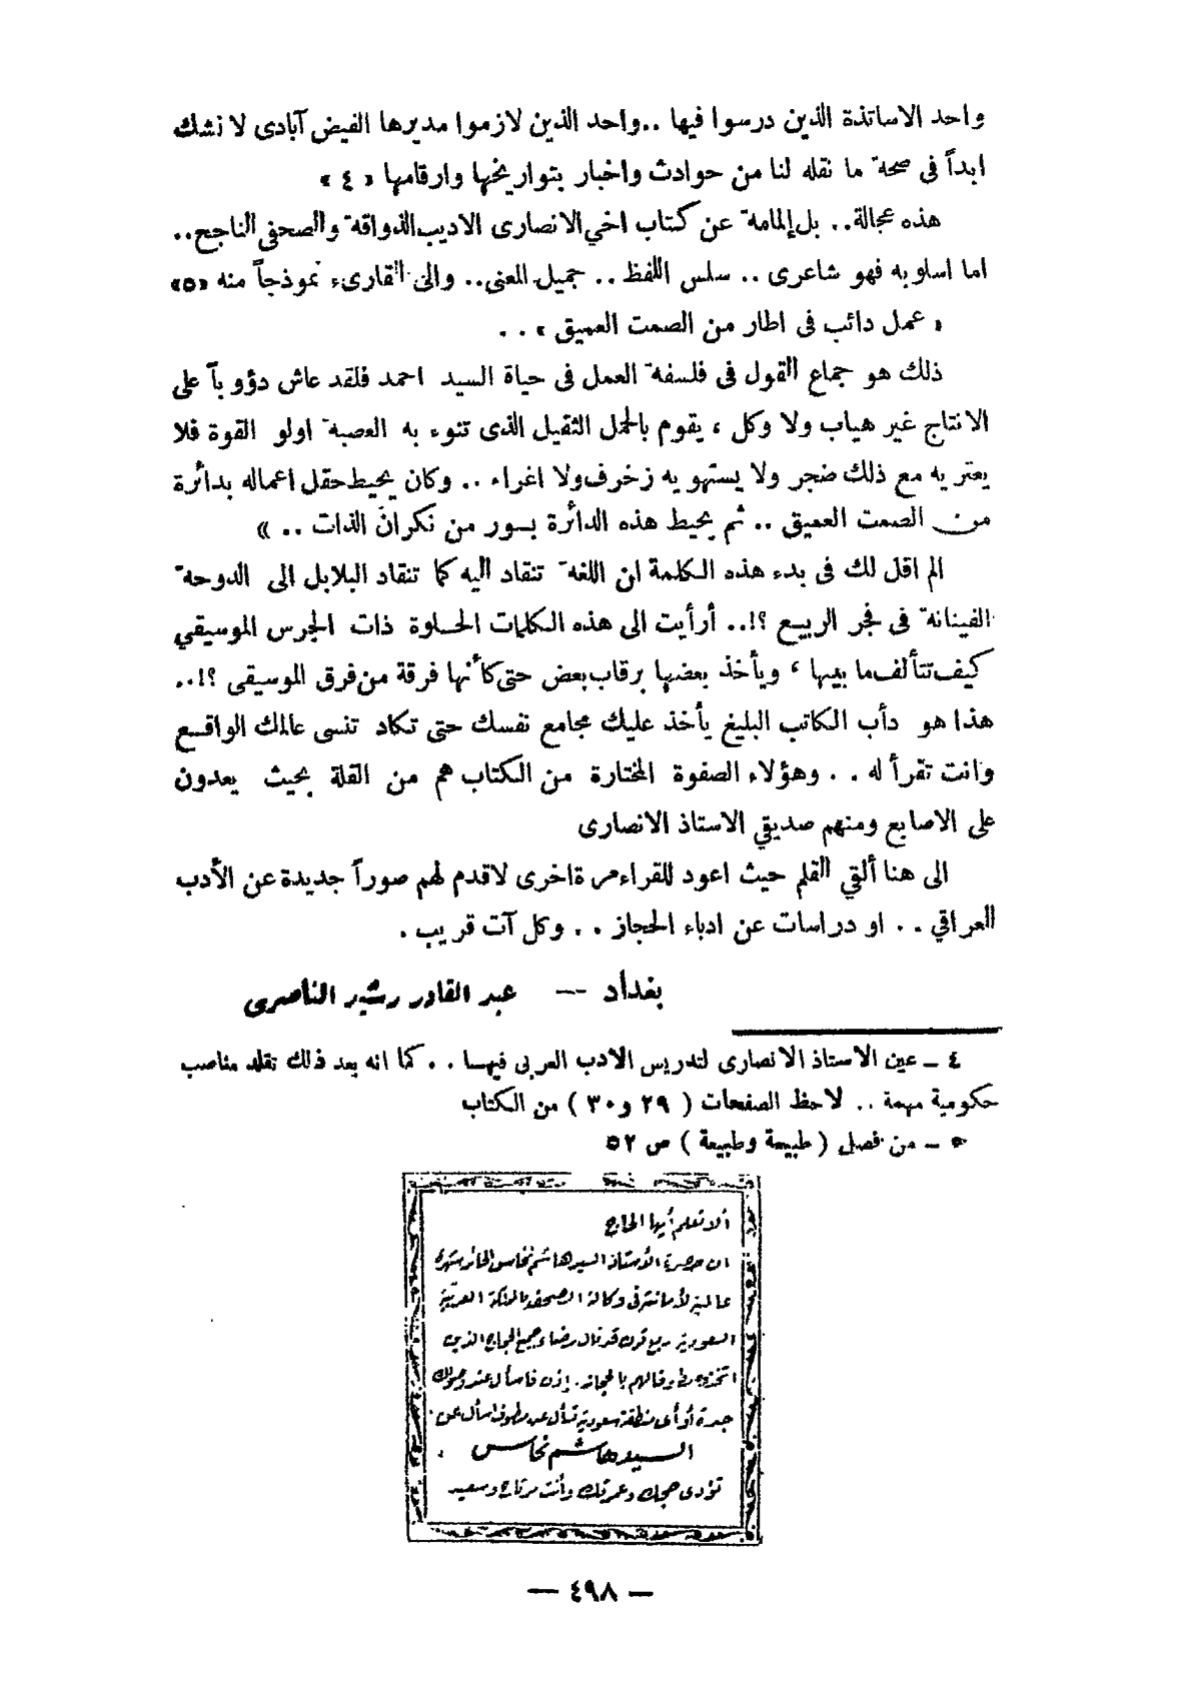 واحد الاساتذة الذين درسوا فيها ..واحد الذين لازموا مديرها الفيض آبادى لا نشك
ابداً فى صحة ما نقله لنا من حوادث واخبار بتواريخها وارقامها « ٤ »
هذه عجالة.. بل إلمامة عن كتاب اخي الانصارى الاديب الذواقة والصحفى الناجح..
اما اسلوبه فهو شاعرى .. سلس اللفظ .. جميل المعنى.. والى القارىء نموذجاً منه «٥»
« عمل دائب فى اطار من الصمت العميق » . .
ذلك هو جماع القول فى فلسفة العمل فى حياة السيد احمد فلقد عاش دؤوباً على
الانتاج غير هياب ولا وكل ، يقوم بالحمل الثقيل الذى تنوء به العصبة اولو القوة فلا
يعتريه مع ذلك ضجر ولا يستهويه زخرف ولا اغراء .. وكان يحيط حقل اعماله بدائرة
من الصمت العميق .. ثم يحيط هذه الدائرة بسور من نكران الذات .. »
الم اقل لك فى بدء هذه الكلمة ان اللغة تنقاد اليه كما تنقاد البلابل الى الدوحة
الفينانة فى فجر الربيع ؟!.. أرأيت الى هذه الكلمات الحلوة ذات الجرس الموسيقي
كيف تتألف ما بينها ، ويأخذ بعضها برقاب بعض حتى كأنها فرقة من فرق الموسيقى ؟!..
هذا هو دأب الكاتب البليغ يأخذ عليك مجامع نفسك حتى تكاد تنسى عالمك الواقع
وانت تقرأ له . . وهؤلاء الصفوة المختارة من الكتاب هم من القلة بحيث يعدون
على الاصابع ومنهم صديقي الاستاذ الانصارى
الى هنا ألقي القلم حيث اعود للقراء مرة اخرى لاقدم لهم صوراً جديدة عن الأدب
العراقي . . او دراسات عن ادباء الحجاز . . وكل آت قريب .
بغداد — عبد القادر رشيد الناصرى
٤ ــ عين الاستاذ الانصارى لتدريس الادب العربى فيها . . كما انه بعد ذلك تقلد مناصب
حكومية مهمة .. لاحظ الصفحات ( ٢٩ و ٣٠ ) من الكتاب
٥ ــ من فصل ( طبيعة وطبيعة ) ص ٥٢
ألا تعلم أيها الحاج
ان حضرة الأستاذ السيد هاشم نحاس الحائز شهرة
عالمية لأمانته فى وكالة الصحف بالمملكة العربية
السعودية ربع قرن قد نال رضاء جميع الحجاج الذين
اتخذوه مطوفا لهم بالحجاز. إذن فاسأل عند وصولك
جدة أو أى منطقة سعودية تسأل عن مطوف اسأل عن
السيد هاشم نحاس
تؤدى حجك وعمرتك وأنت مرتاح وسعيد
— ٤٩٨ —